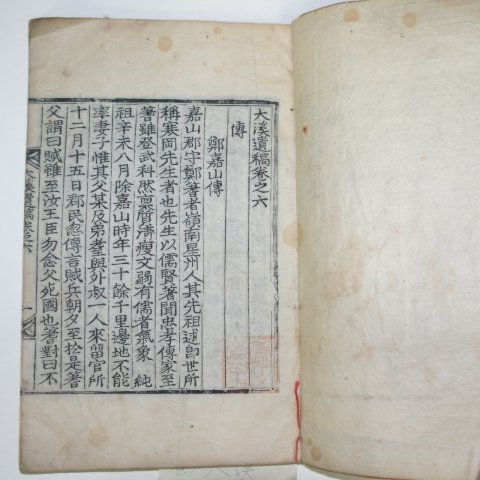 大溪遺稿卷之六
傳
鄭嘉山傳
嘉山郡守鄭蓍者嶺南星州人其先祖逑卽世所
稱寒岡先生者也先生以儒賢著聞忠孝傳家至
蓍雖登武科然稟質淸瘦文弱有儒者氣象 純
祖辛未八月除嘉山時年三十餘千里邊地不能
率妻子惟其父某及弟䕫與外叔一人來留官所
十二月十五日郡民忽傳言賊兵朝夕至於是蓍
父謂曰賊雖至汝王臣勿念父死國也蓍對曰不
大溪遺稿卷六
一